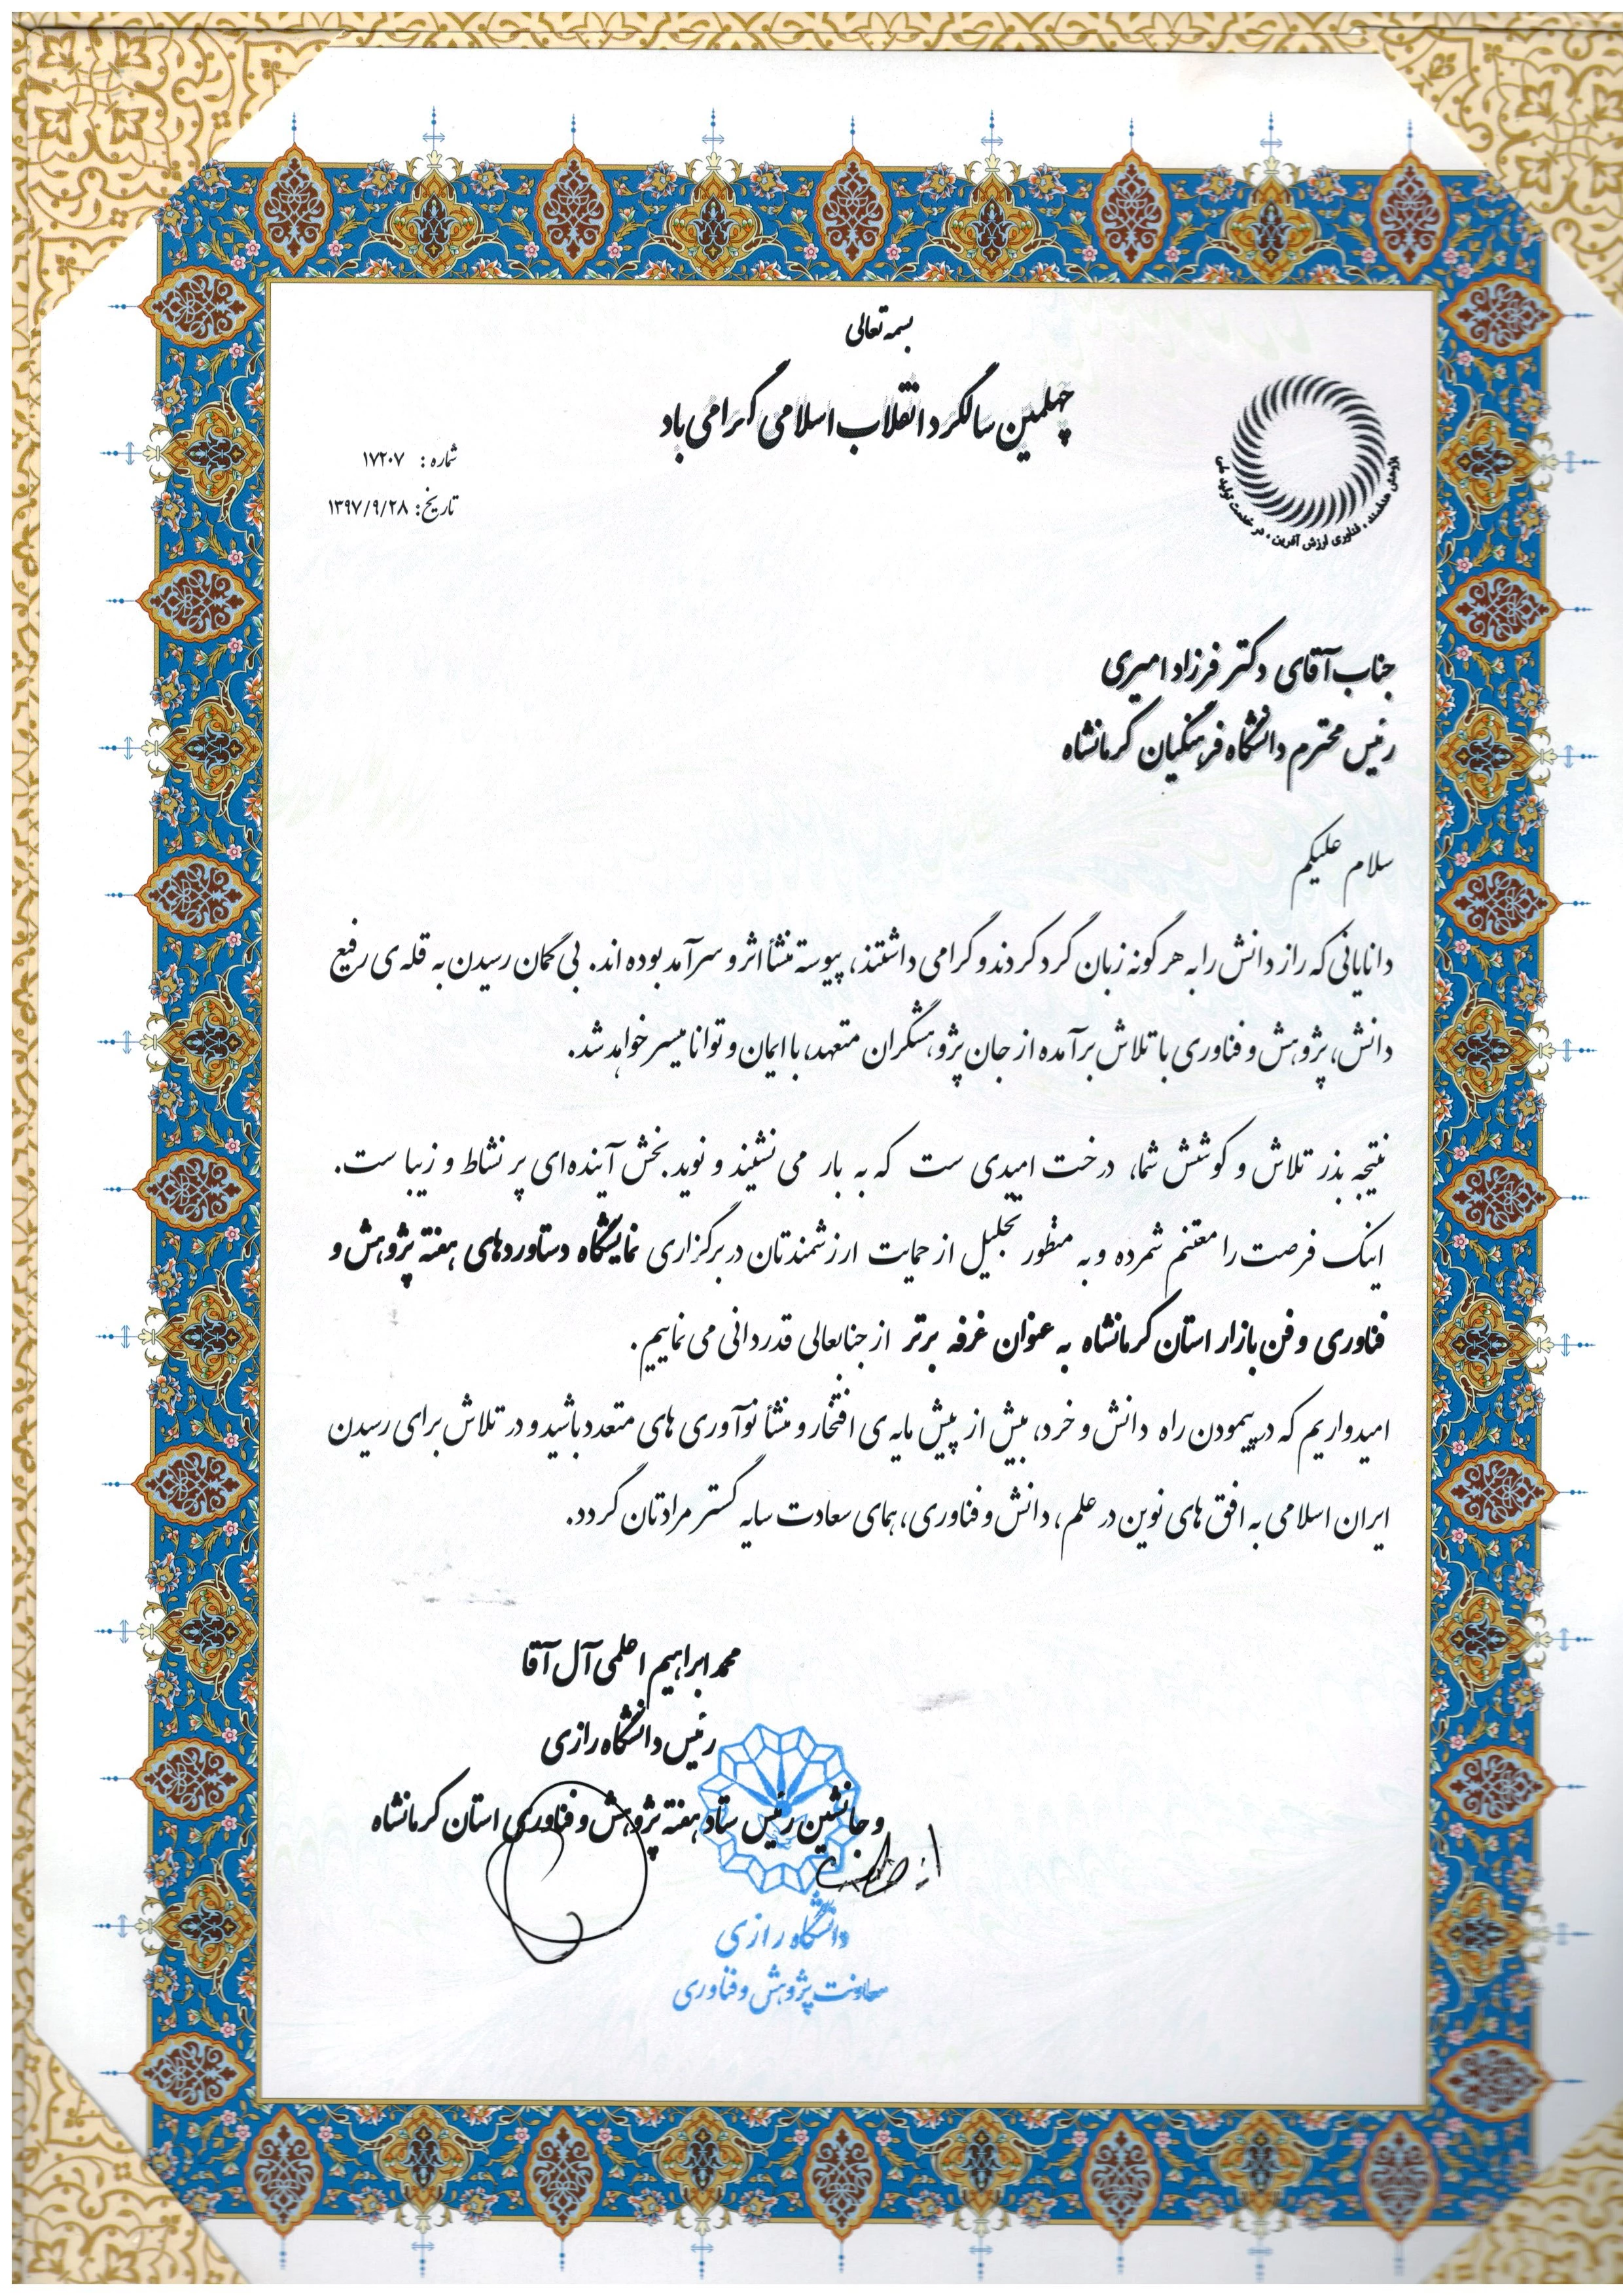 بسمه تعالی
چهلمین سالگرد انقلاب اسلامی گرامی باد
شماره : ۱۷۲۰۷
تاریخ: ۱۳۹۷/۹/۲۸
پژوهش هدفمند ، فناوری ارزش آفرین ، در خدمت تولید ملی
جناب آقای دکتر فرزاد امیری
رئیس محترم دانشگاه فرهنگیان کرمانشاه
سلام علیکم
دانایانی که راز دانش را به هر گونه زبان گرد کردند و گرامی داشتند، پیوسته منشأ اثر و سرآمد بوده اند. بی گمان رسیدن به قله ی رفیع
دانش، پژوهش و فناوری با تلاش برآمده از جان پژوهشگران متعهد، با ایمان و توانا میسر خواهد شد.
نتیجه بذر تلاش و کوشش شما، درخت امیدی ست که به بار می نشیند و نوید بخش آینده ای پر نشاط و زیبا ست.
اینک فرصت را مغتنم شمرده و به منظور تجلیل از حمایت ارزشمندتان در برگزاری نمایشگاه دستاوردهای هفته پژوهش و
فناوری و فن بازار استان کرمانشاه به عنوان غرفه برتر از جنابعالی قدردانی می نماییم.
امیدواریم که در پیمودن راه دانش و خرد، بیش از پیش مایه ی افتخار و منشأ نوآوری های متعدد باشید و در تلاش برای رسیدن
ایران اسلامی به افق های نوین در علم، دانش و فناوری، همای سعادت سایه گستر مرادتان گردد.
محمد ابراهیم اعلمی آل آقا
رئیس دانشگاه رازی
و جانشین رئیس ستاد هفته پژوهش و فناوری استان کرمانشاه
دانشگاه رازی
معاونت پژوهش و فناوری